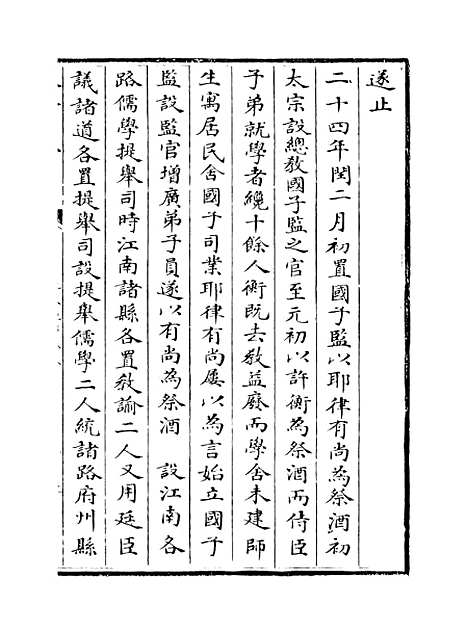 遂止
二十四年閏二月初置國子監以耶律有尚為祭酒初
太宗設總教國子監之官至元初以許衡為祭酒而侍臣
子弟就學者纔十餘人衡既去教益廢而學舍未建師
生寓居民舍國子司業耶律有尚屢以為言始立國子
監設監官增廣弟子員遂以有尚為祭酒　設江南各
路儒學提舉司時江南諸縣各置教諭二人又用廷臣
議諸道各置提舉司設提舉儒學二人統諸路府州縣